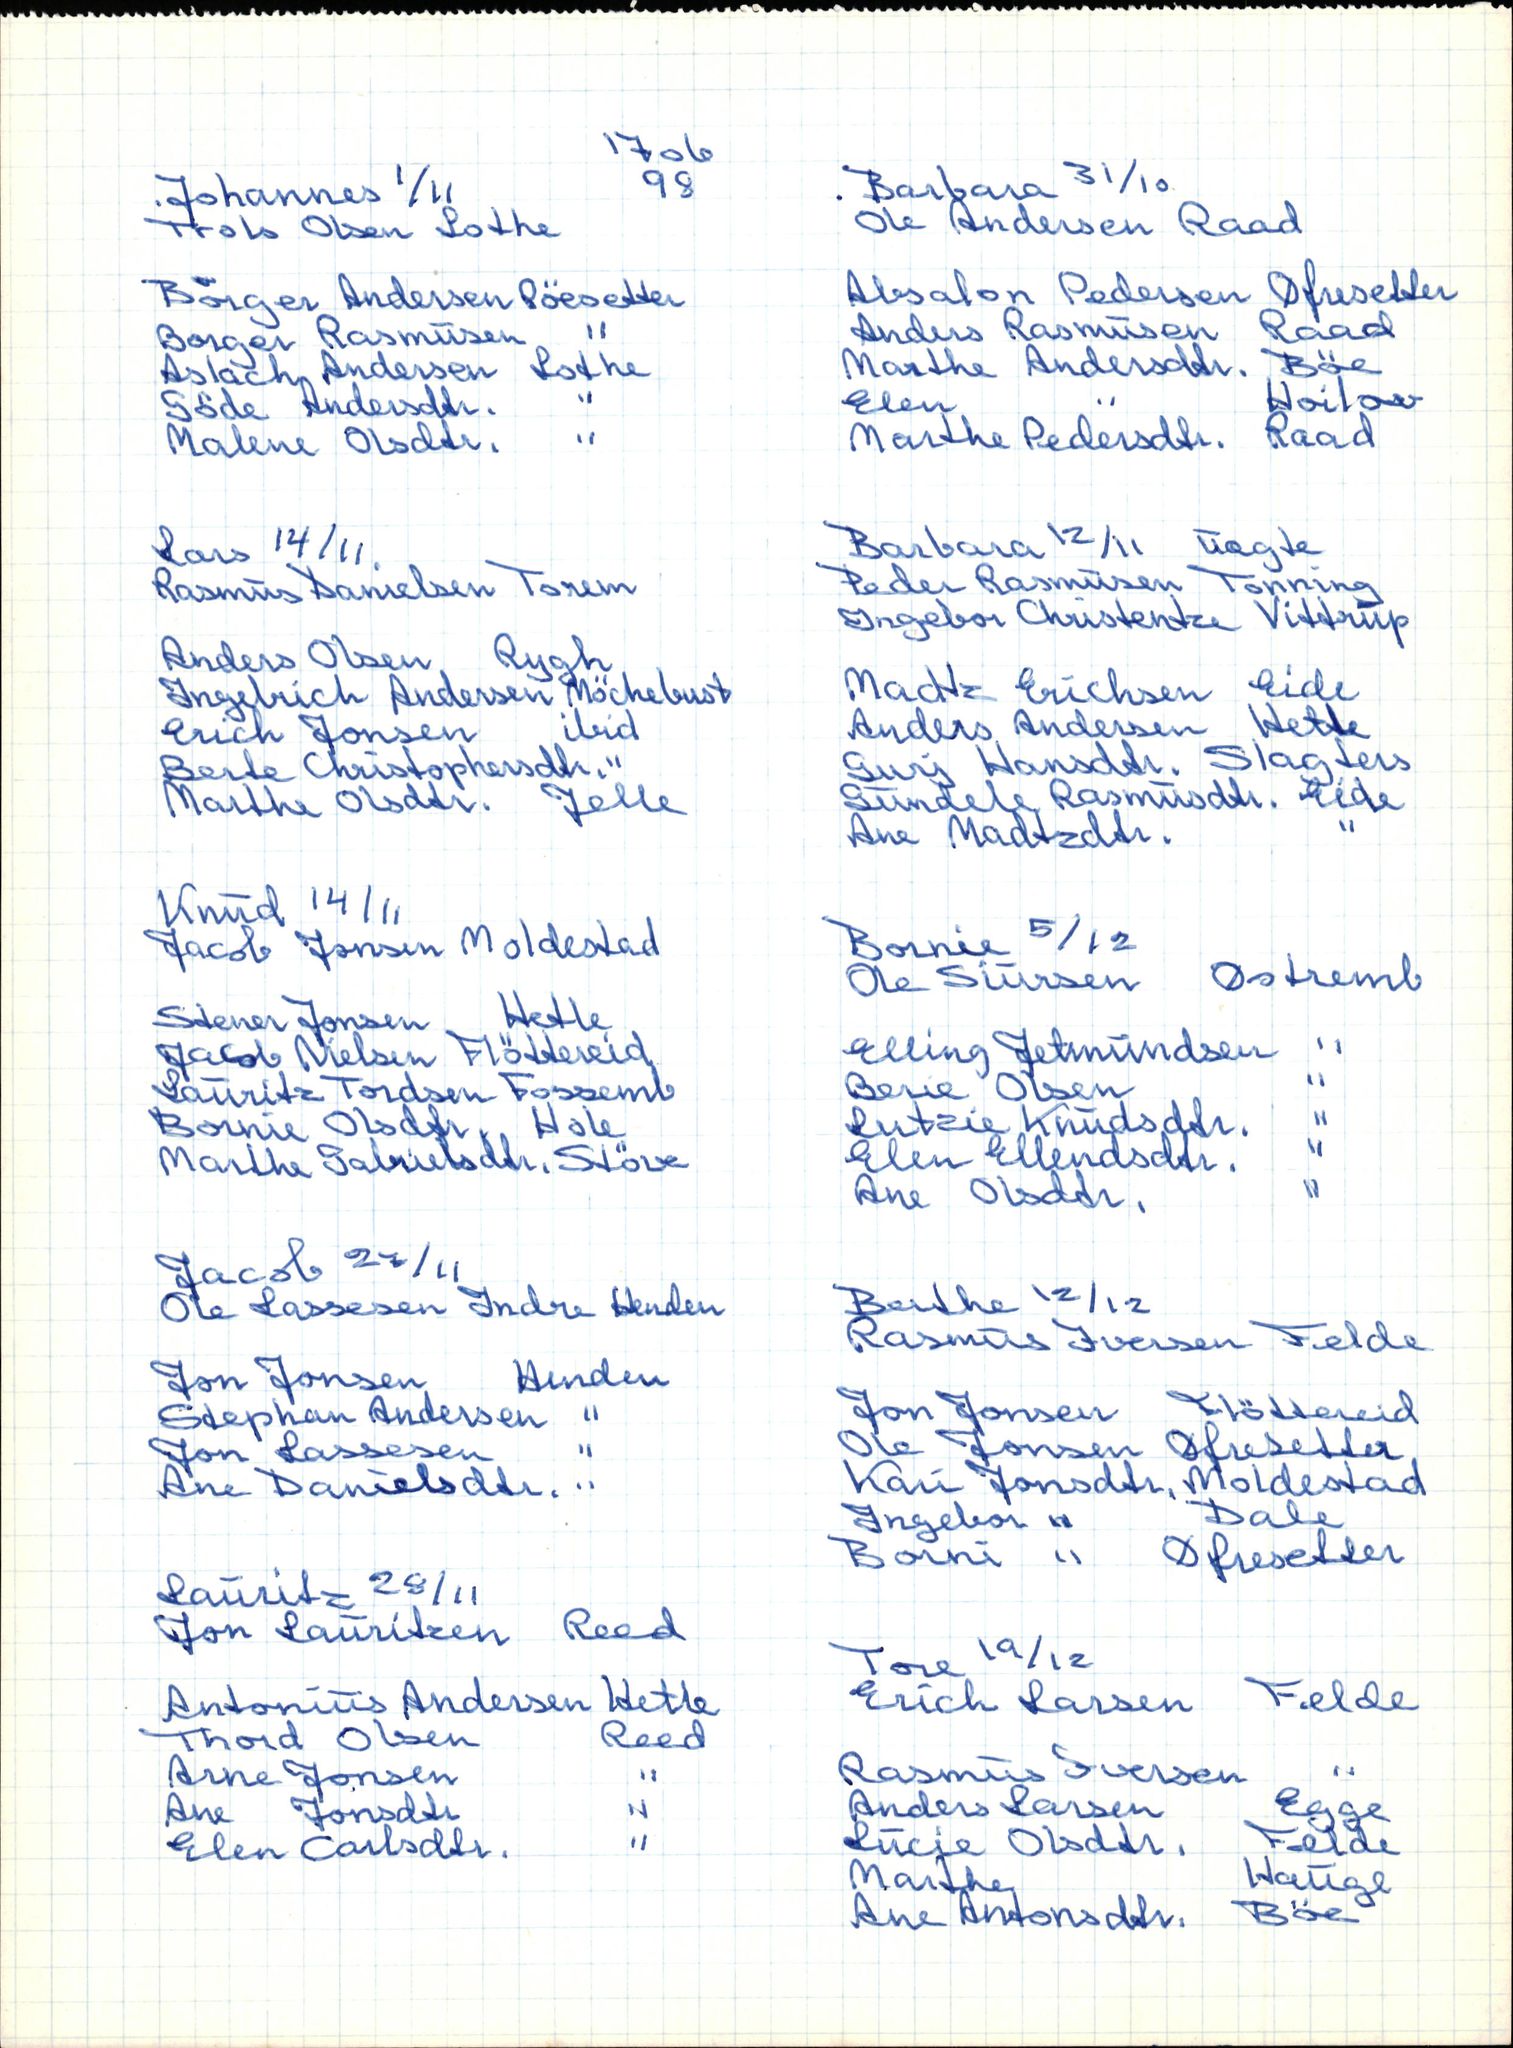 1706
98
.Johannes 1/11
Trols Olsen Lothe
Börger Andersen Pöesetter
Borger Rasmüsen "
Aslach Andersen Lothe
Göde Andersdtr. "
Malene Olsdtr. "
Lars 14/11.
Rasmüs Danielsen Torem
Anders Olsen Rygh
Ingebrich Andersen Möchebust
Erich Jonsen ibid
Berte Christophersdtr. "
Marthe Olsdtr. Jelle
Knüd 14/11
Jacob Jonsen Moldestad
Stener Jonsen Hetle
Jacob Nielsen Flöttereid
Laüritz Tordsen Fossemb
Bornie Olsdtr. Hole
Marthe Gabrielsdtr. Störe
Jacob /11
Ole Lassesen Indre Henden
Jon Jonsen Henden
Stephan Andersen "
Jon Lassesen "
Ane Danielsdtr. "
Laüritz 28/11
Jon Laüritzen Reed
Antoniüs Andersen Hetle
Thord Olsen Reed
Arne Jonsen "
Ane Jonsdtr "
Elen Carlsdtr. "
. Barbara 31/10
Ole Andersen Raad
Absalon Pedersen Øfresetter
Anders Rasmüsen Raad
Marthe Andersdtr. Böe
Elen " Hoilow
Marthe Pedersdtr. Raad
Barbara 12/11 üegte
Peder Rasmüsen Tonning
Ingebor Christentze Vittrüp
Madtz Erichsen Eide
Anders Andersen Hetle
Gurj Hansdtr. Slagters
Gündele Rasmüsdtr. Eide
Ane Madtzdtr. "
Bornie 5/12
Ole Siürsen Østremb
Elling Jetmündsen "
Berie Olsen "
Lutzie Knüdsdtr. "
Elen Ellendsdtr. "
Ane Olsdtr. "
Berthe 12/12
Rasmüs Iversen Felde
Jon Jonsen Flöttereid
Ole Jonsen Øfresetter
Kari Jonsdtr. Moldestad
Ingebor " Dale
Borni " Øfresetter
Tore 19/12
Erich Larsen Felde
Rasmüs Iversen "
Anders Larsen Egge
Lücie Olsdtr. Felde
Marthe Haüge
Ane Antonsdtr. Böe